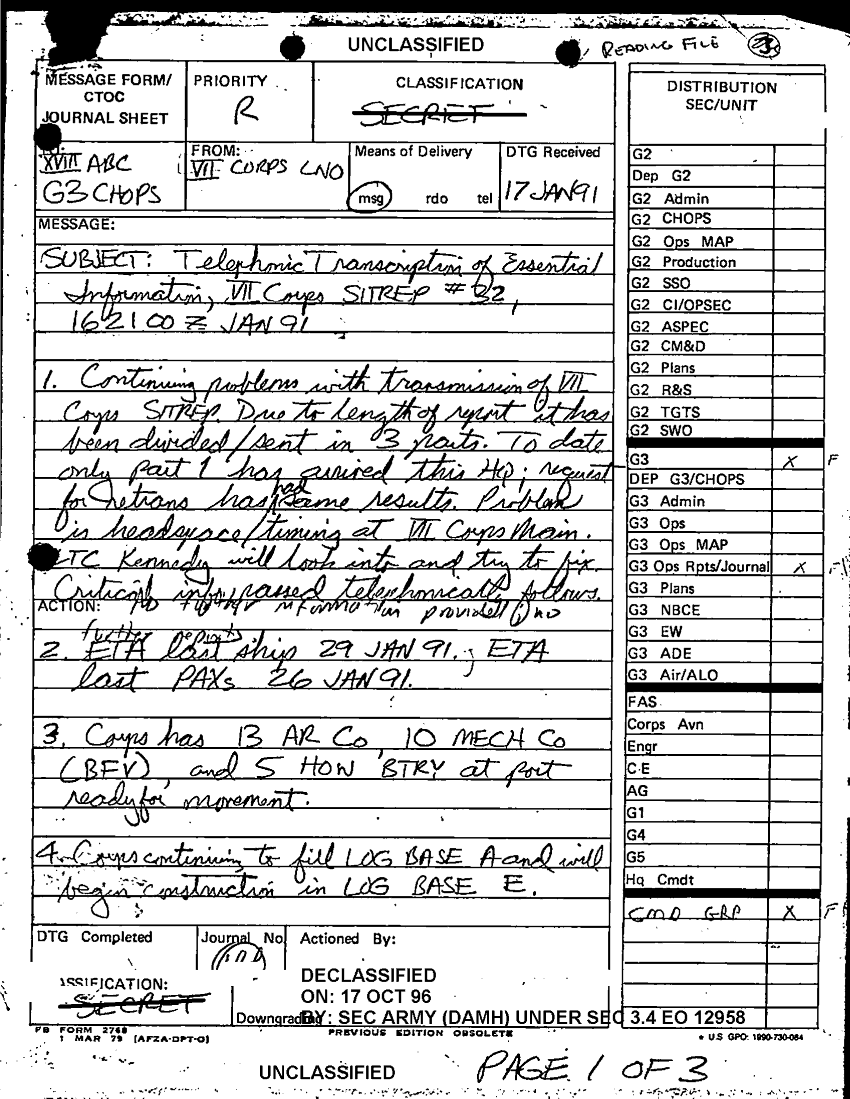 UNCLASSIFIED
READING FILE
MESSAGE FORM/
CTOC
JOURNAL SHEET
PRIORITY
R
CLASSIFICATION
SECRET
XVIII ABC
G3 CHOPS
FROM:
VII CORPS LNO
Means of Delivery
msg rdo tel
DTG Received
17 JAN 91
MESSAGE:
SUBJECT: Telephonic Transcription of Essential
Information, VII Corps SITREP # 32,
162100Z JAN 91
1. Continuing problems with transmission of VII
Corps SITREP. Due to length of report it has
been divided/sent in 3 parts. To date
only part 1 has arrived this HQ; request
for retrans has had same results. Problem
is headspace/timing at VII Corps Main.
LTC Kennedy will look into and try to fix.
Critical info passed telephonically follows.
ACTION:
information provided
further
2. ETA last ship 29 JAN 91.; ETA
last PAXs 26 JAN 91.
3. Corps has 13 AR Co, 10 MECH Co
(BFV), and 5 HOW BTRY at port
ready for movement.
4. Corps continuing to fill LOG BASE A and will
begin construction in LOG BASE E.
DTG Completed
Journal No.
Actioned By:
ASSIFICATION:
SECRET
DECLASSIFIED
ON: 17 OCT 96
Downgrading
BY: SEC ARMY (DAMH) UNDER SEC 3.4 EO 12958
FB FORM 2748
1 MAR 79 (AFZA-DPT-O)
PREVIOUS EDITION OBSOLETE
* U.S GPO: 1990-730-064
UNCLASSIFIED
PAGE 1 OF 3
DISTRIBUTION
SEC/UNIT
G2
Dep G2
G2 Admin
G2 CHOPS
G2 Ops MAP
G2 Production
G2 SSO
G2 CI/OPSEC
G2 ASPEC
G2 CM&D
G2 Plans
G2 R&S
G2 TGTS
G2 SWO
G3 X F
DEP G3/CHOPS
G3 Admin
G3 Ops
G3 Ops MAP
G3 Ops Rpts/Journal X F
G3 Plans
G3 NBCE
G3 EW
G3 ADE
G3 Air/ALO
FAS
Corps Avn
Engr
C-E
AG
G1
G4
G5
Hq Cmdt
CMD GRP X F